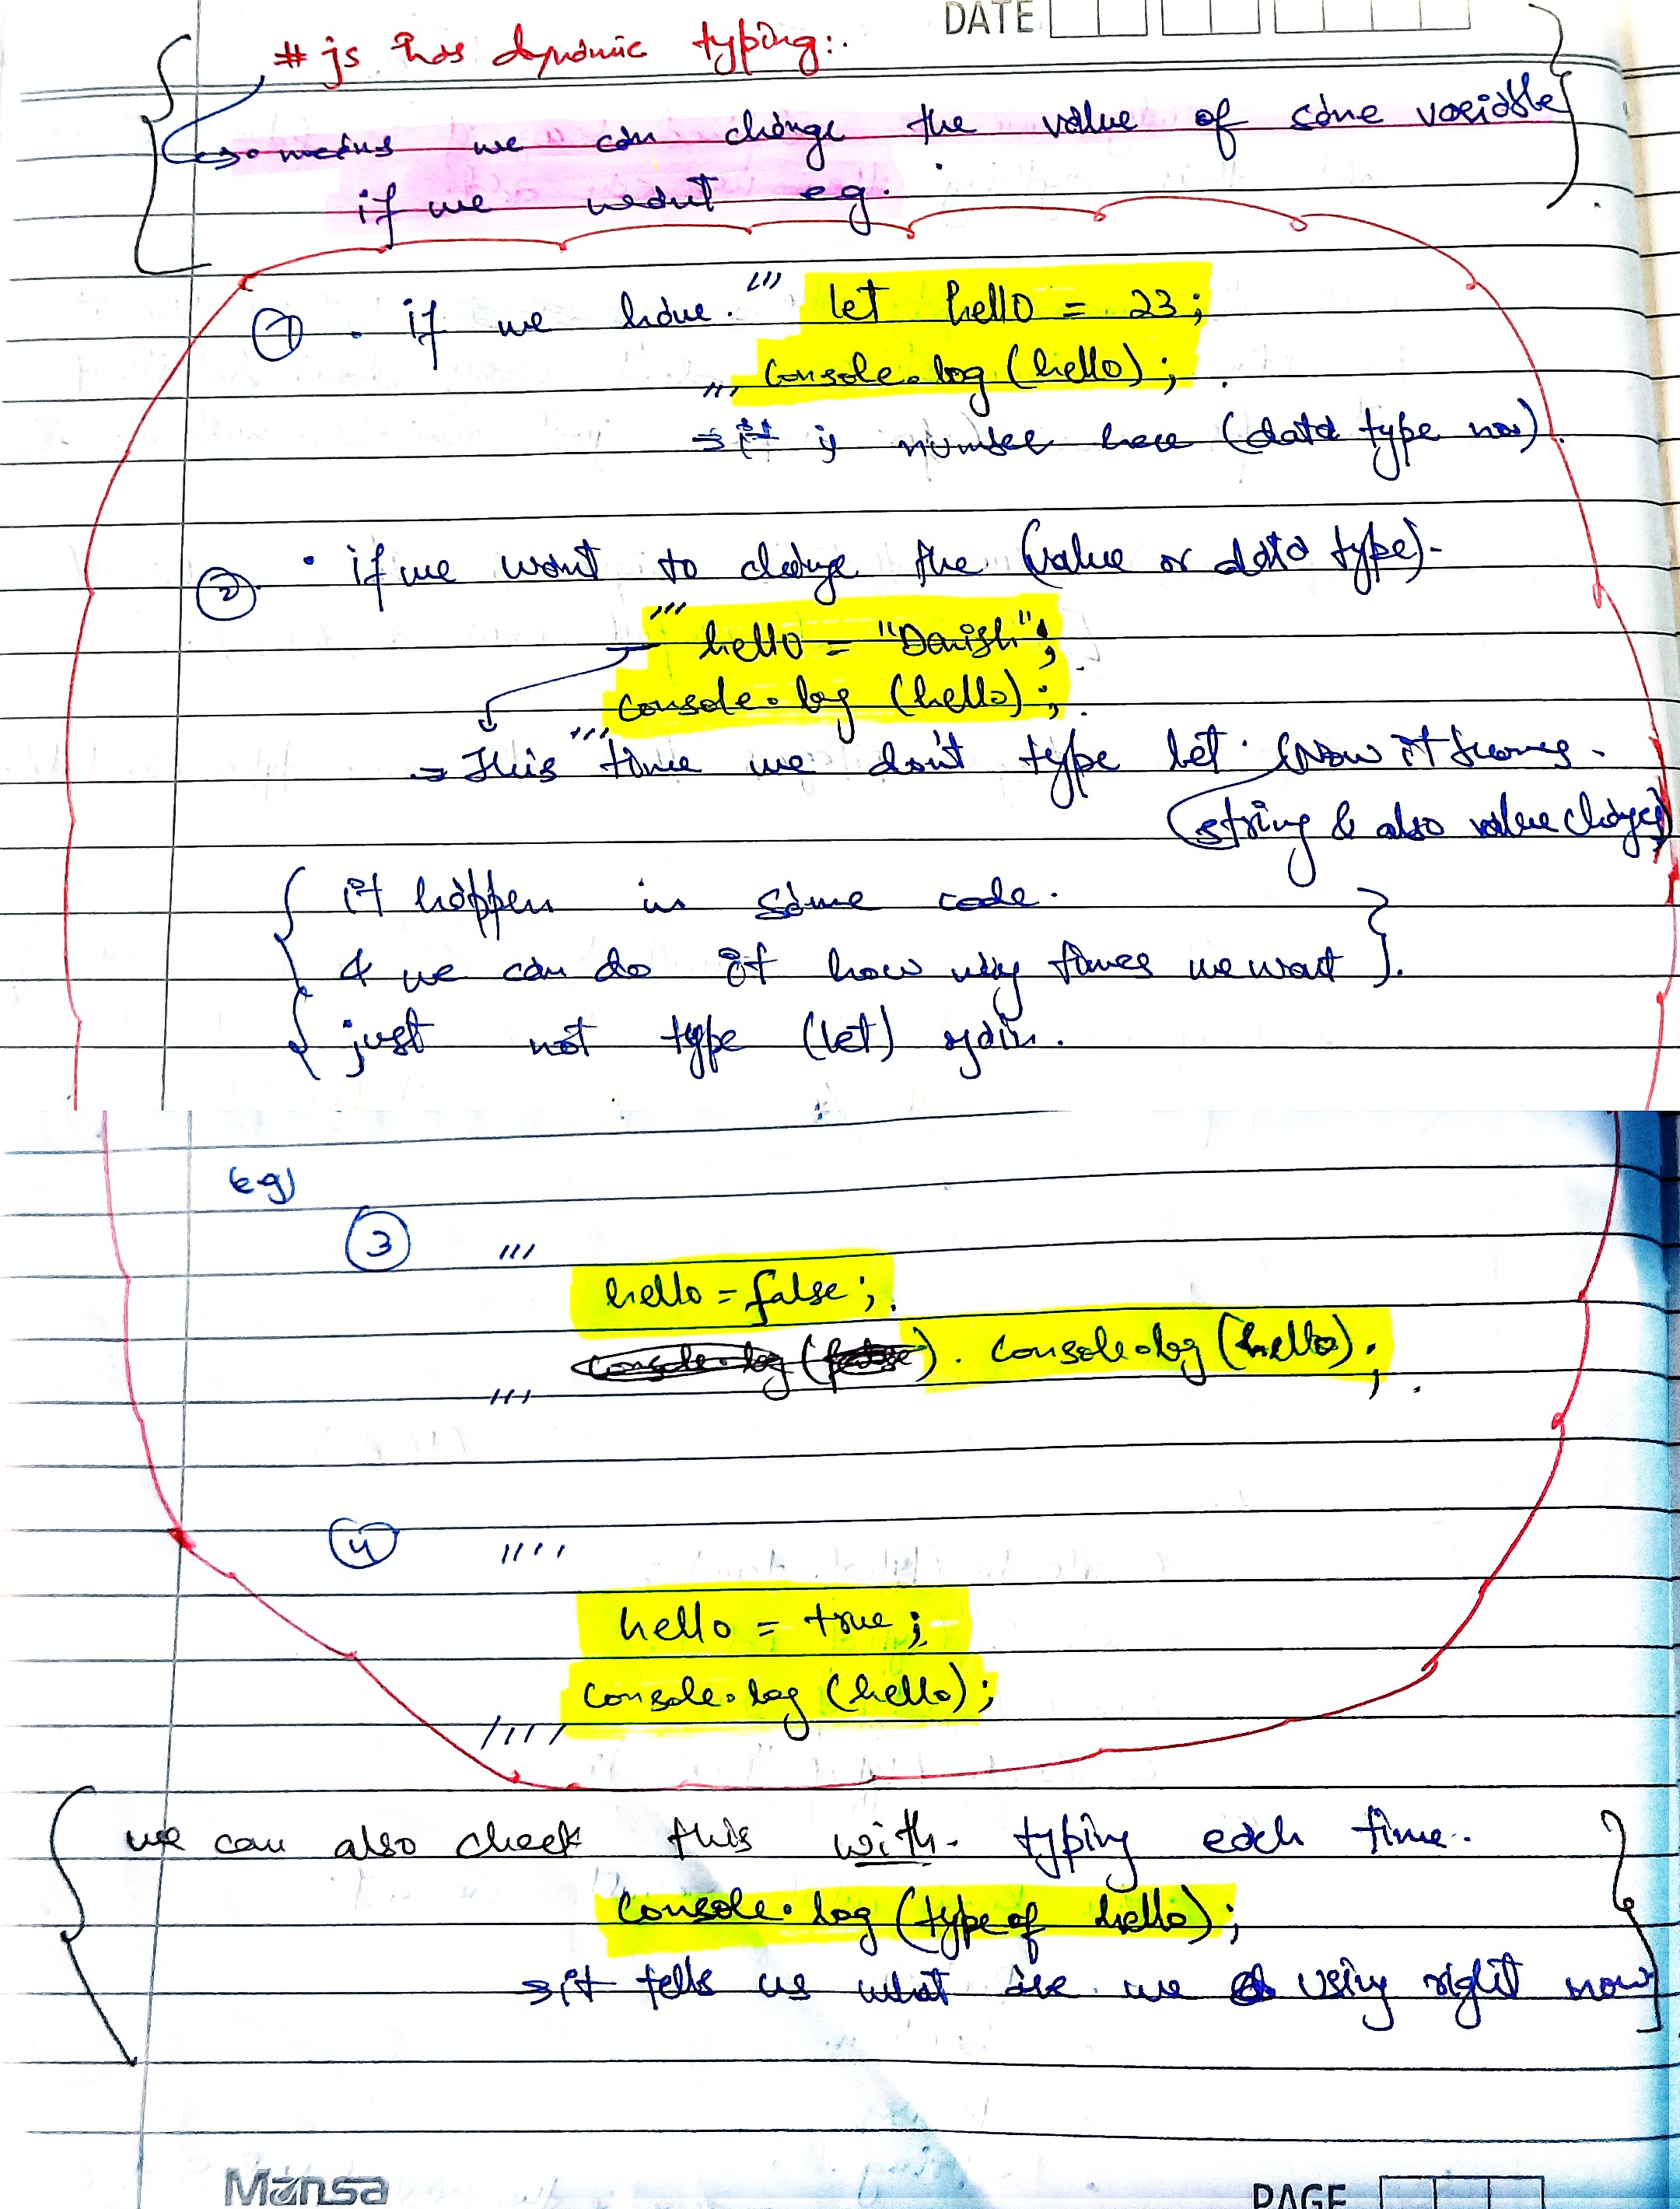 DATE
# js has dynamic typing:.
→ means we can change the value of same variable
if we want eg.
① . if we have. ''' let hello = 23;
''' console.log (hello);
⇒ it is number here (data type no.)
② • if we want to change the (value or data type).
''' hello = "Danish";
console.log (hello);
'''
⇒ This time we don't type let. (Now it turns.
string & also value changes)
it happen in same code.
& we can do it how many times we want
just not type (let) again.
eg)
③ '''
hello = false;
console.log (hello);
'''
④ ''''
hello = true;
console.log (hello);
''''
we can also check this with typing each time.
console.log (typeof hello);
⇒ it tells us what are we using right now
Mansa
PAGE